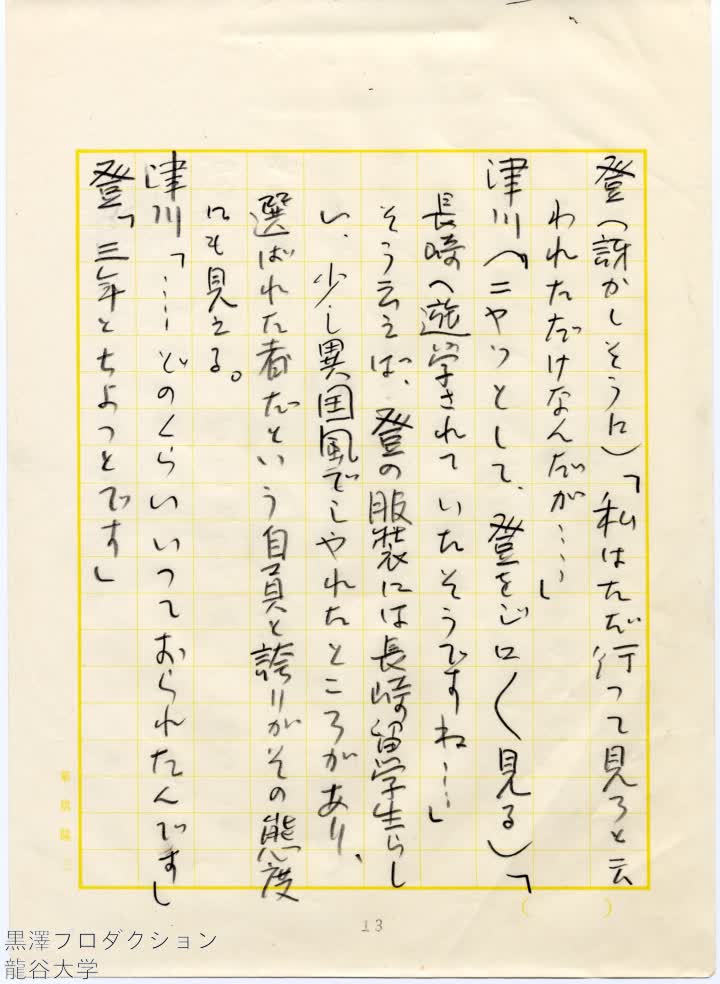 登(訝かしそうに)「私はただ行って見ろと云
われただけなんだが……」
津川(ニヤッとして、登をジロ〱見る)「
長崎へ遊学されていたそうですね……」
そう云えば、登の服装には長崎留学生らし
い、少し異国風でしやれたところがあり、
選ばれた者だという自負と誇りがその態度
にも見える。
津川「……どのくらいいっておられたんです」
登「三年とちょっとです」
13
黒澤プロダクション
龍谷大学